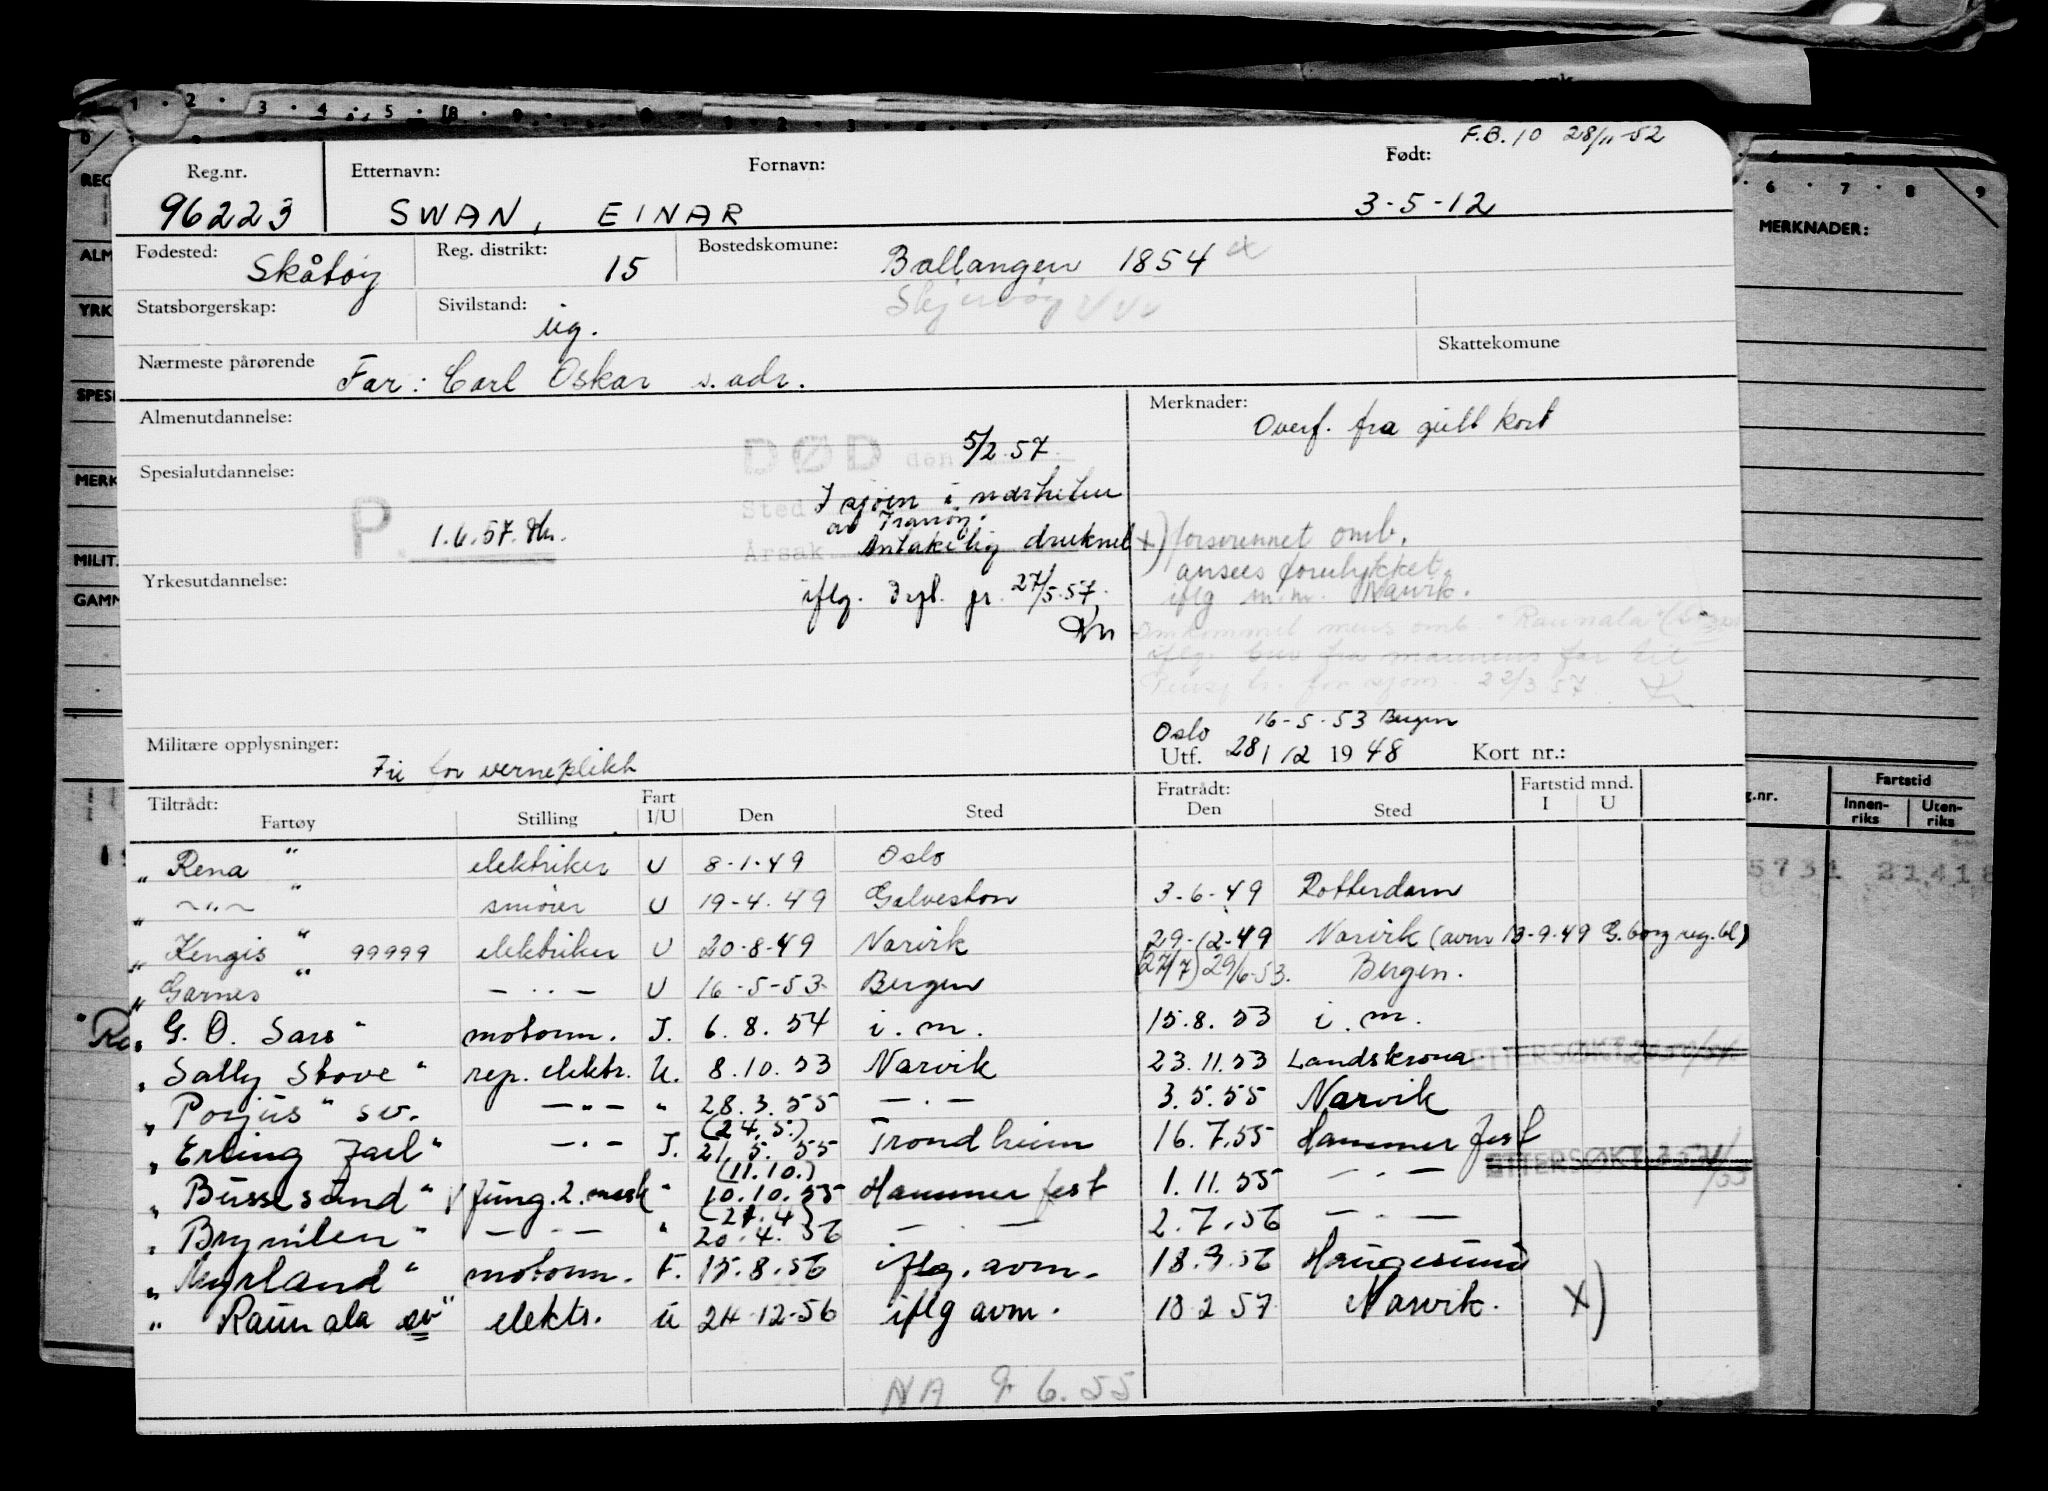 F.B. 10 28/11-52
Reg.nr. Etternavn: Fornavn: Født:
96223 SWAN, EINAR 3-5-12
Fødested: Skåtøy Reg. distrikt: 15 Bostedskomune: Ballangen 1854 x
Statsborgerskap: Sivilstand: ug. Skjervøy
Nærmeste pårørende Far: Carl Oskar s. adr. Skattekomune
Almenutdannelse: Merknader: Overf. fra gult kort
DØD den 5/2.57.
Spesialutdannelse: Sted I sjøen i nærheten
av Tranøy.
P. 1.6.57. Årsak Antakelig druknet
x) forsvunnet omb.
ansees forulykket.
iflg m.m. Narvik.
Yrkesutdannelse: iflg. 27/5.57.
Omkommet mens omb. "Raunala"
iflg. brev fra mannens far til
for sjøm. 22/3 57
Oslo 16-5-53 Bergen
Militære opplysninger: Fri for verneplikt Utf. 28/12 1948 Kort nr.:
Tiltrådt: Fartøy Stilling Fart I/U Den Sted Fratrådt: Den Sted Fartstid mnd. I U
" Rena " elektriker U 8-1-49 Oslo
" ~"~ " smører U 19-4-49 Galveston 3-6-49 Rotterdam
" Kengis " 99999 elektriker U 20-8-49 Narvik 29-12-49 Narvik (avm 13-9-49 G.borg reg.bl)
" Garnes " - " - U 16-5-53 Bergen (27/7) 29/6-53. Bergen.
" G. O. Sars " motorm. I. 6.8.54 i.m. 15.8.53 i.m.
" Sally Stove " rep. elektr. U. 8.10.53 Narvik 23.11.53 Landskrona ETTERSØKT
" Porjus " sv. - " - " 28.3.55 - " - 3.5.55 Narvik
" Erling Jarl " - " - I. (24.5.) 21.5.55 Trondheim 16.7.55 Hammerfest
ETTERSØKT
" Bussesund " fung. 2. mask " (11.10.) 10.10.55 Hammerfest 1.11.55 - " -
" Brynilen " - " - " (24.4) 20.4.56 - " - 2.7.56 - " -
" Myrland " motorm. F. 15.8.56 iflg. avm. 18.9.56 Haugesund
" Raunala sv " elektr. U 24-12-56 iflg avm. 18 2 57 Narvik. x)
NA 9 6.55
MERKNADER:
Fartstid
Innenriks Utenriks